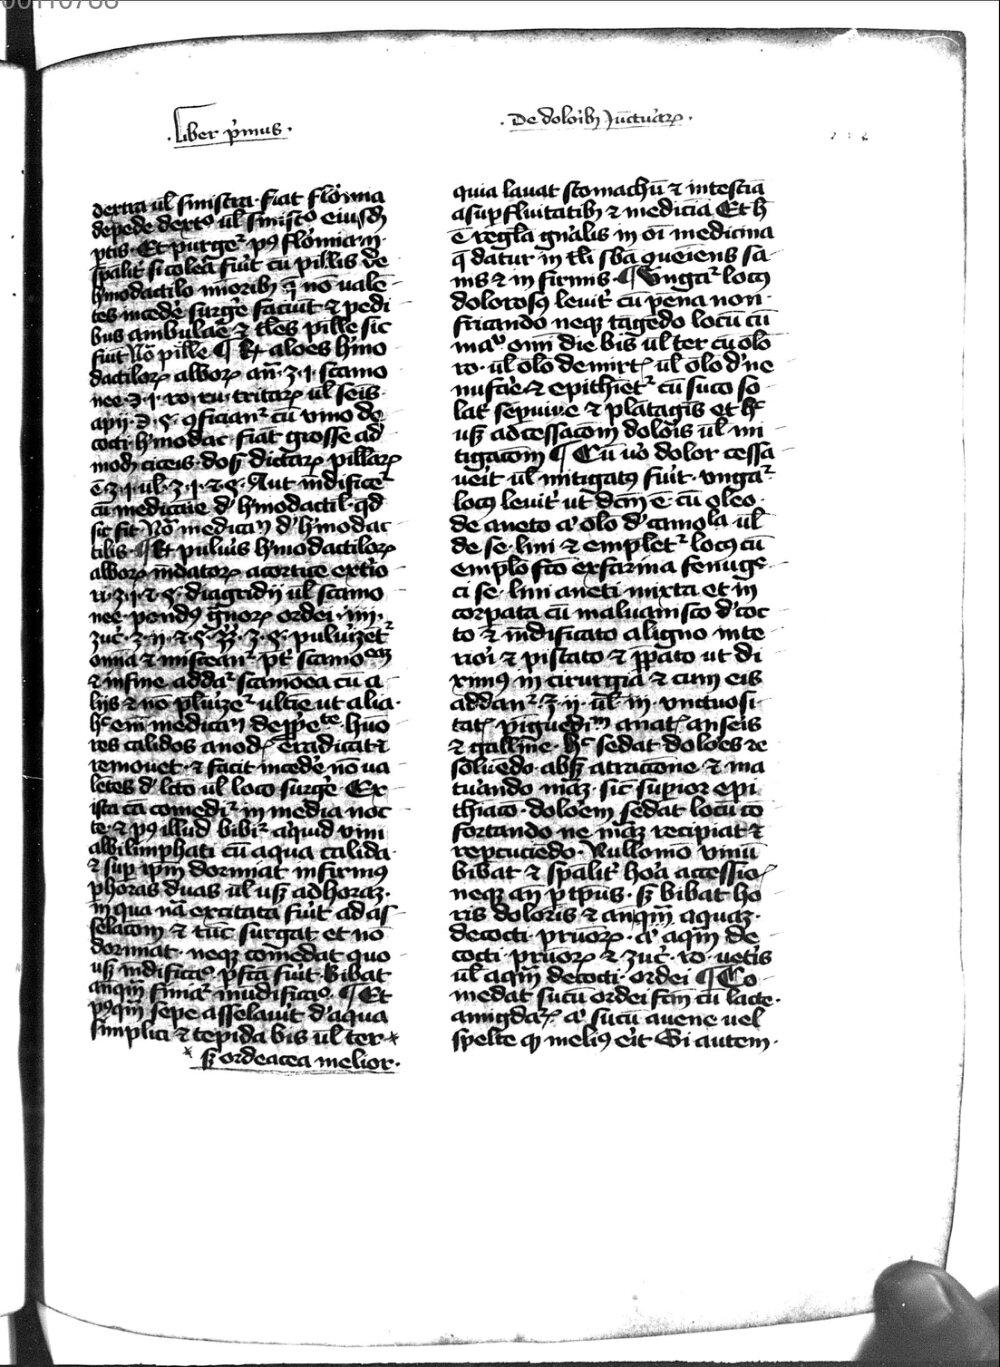 00110788
.Liber p̃mus.
.De doloribꝫ Iūctuarꝝ.
dextra ul̃ sinistra. fiat flo'mia
de pede dextᵒ ul̃ sinistᵒ eiusdē
ptis. Et purgeᷣ pꝰ flo'miam.
sp̃alit̃ si colea fu'it cū pillis de
h'modactilo mioribꝫ q̄ nō valē
tes incede' surge' faciūt ⁊ pedi
bus ambulae' ⁊ tl̃es pille sic
fiūt Nō pille ¶ R͓ aloes h'mo
dactilorꝝ alborꝝ an̄. ʒ. i. scamo
nee. ʒ. i. ro. ru. tritarꝝ ul̃ seīs.
apij. ꝯficianᷣ cū vino de
cocti. h'modac. fiat grosse ad
modū cice'is. dosꝫ dictarꝝ pillarꝝ
ē ʒ. i. ul̃. ʒ. i. ⁊ s̃. Aut mūdificeᷣ
cū medicīe d' h'modactil. qd̄
sic fit. Nō medican̄ d' h'modac
tilis. ¶ R͓ puluīs h'modactilorꝝ
alborꝝ mūdatorꝝ a cortice ext'io
ri. ʒ. i. ⁊ s̃. diagridij ul̃ scamo
nee. pondꝰ g̃norꝝ ordei. iiii.
zuc̃. ʒ. ii. ⁊ s̃. ʒ. s̃. puluizēt'
oīnia ⁊ misceanᷣ pt̃ scamoeā
⁊ in fine addaᷣ scamoea cū a
lijs ⁊ nō pluizeᷣ ultīe ut alia.
hᶜ em̄ medican̄ huo
res calidos a nod. eradicat ⁊
remouet. ⁊ facit incede' nō va
lētes d' lc̄to ul̃ loco surge'. Ex
ista cā comediᷣ in media noc
te. ⁊ pꝰ illud bibiᷣ aliquid vini
albi limphati cū aqua calida.
⁊ sup ip̄m dormiat infirmꝰ
p horas duas ul̃ usꝫ ad horaʒ.
in qua nā excitata fu'it ad as
selac̄om ⁊ tūc surgat et nō
dormiat. neqꝫ comēdat quo
usꝫ mūdificaᵒ. pfcā fu'it. bibat
anq̄m finiaᷣ mūdificaᵒ. ¶ Et
pꝰq̄m sepe asselauit d' aqua
simplici ⁊ tepida bis ul̃ ter ×
× sꝫ ordeacea melior.
quia lauat stomachū ⁊ intestīa
a supfluitatibꝫ ⁊ medicīa Et h̄
ē regl̃a gn̄alis in oī medicina
q̄ datur in tl̃i sb̄a queiens sa
nis ⁊ infirmis. ¶ Vngaᷣ locꝰ
dolorosꝰ leuit̃ cū pena non
fricando neqꝫ tāgēdo locū cū
maᵘ om̄i die bis ul̃ ter cū olo
ro. ul̃ olo de mirt̃. ul̃ olo d' ne
nufare ⁊ epithiet' cū suco so
lat̃ sepuiue ⁊ plātagis et hᶜ
usꝫ ad cessac̄om dolois ul̃ mi
tigac̄om ¶ Cū v'o dolor cessa
ueit ul̃ mitigatꝰ fu'it. vngaᷣ
locꝰ leuit̃ ut dc̄m ē cū oleo.
de aneto a' olo d' camo͡la ul̃
de se. lini ⁊ emplet' locꝰ cū
emplo fc̄o ex farina fenuge
ci se. lini aneti mixta et in
corpata cū maluauisco d'coc
to ⁊ mūdificato a ligno inte
rioi ⁊ pistato ⁊ p̄pato ut di
ximꝰ in cirurgia ⁊ cum eis
addanᷣ. ʒ. ii. ul̃ iii. vnctuosi
tat̃ anat̃ anseis
⁊ galline. hᶜ sedat doloes re
soluēdo. absꝫ atractōne ⁊ ma
tuando māʒ. sic supior epi
thiato. doloēm sedat locū cō
fortando ne māʒ recipiat ⁊
repcuciēdo. Nullomō vinū
bibat ⁊ sp̃alit̃ hoa accessiōꝭ
neqꝫ an̄ p t'pus. sꝫ bibat ho
ris doloris ⁊ anq̄m aquaʒ.
decocti. pruorꝝ. a' aq̄m de
cocti pruorꝝ ⁊ zuc̃. ro. uet'is
ul̃ aq̄m decocti. ordei ¶ Co
medat sucū ordei fc̄m cū lacte.
amigdaꝝ. a' sucū auene uel
spelte qꝫ meliꝰ eit Si autem.